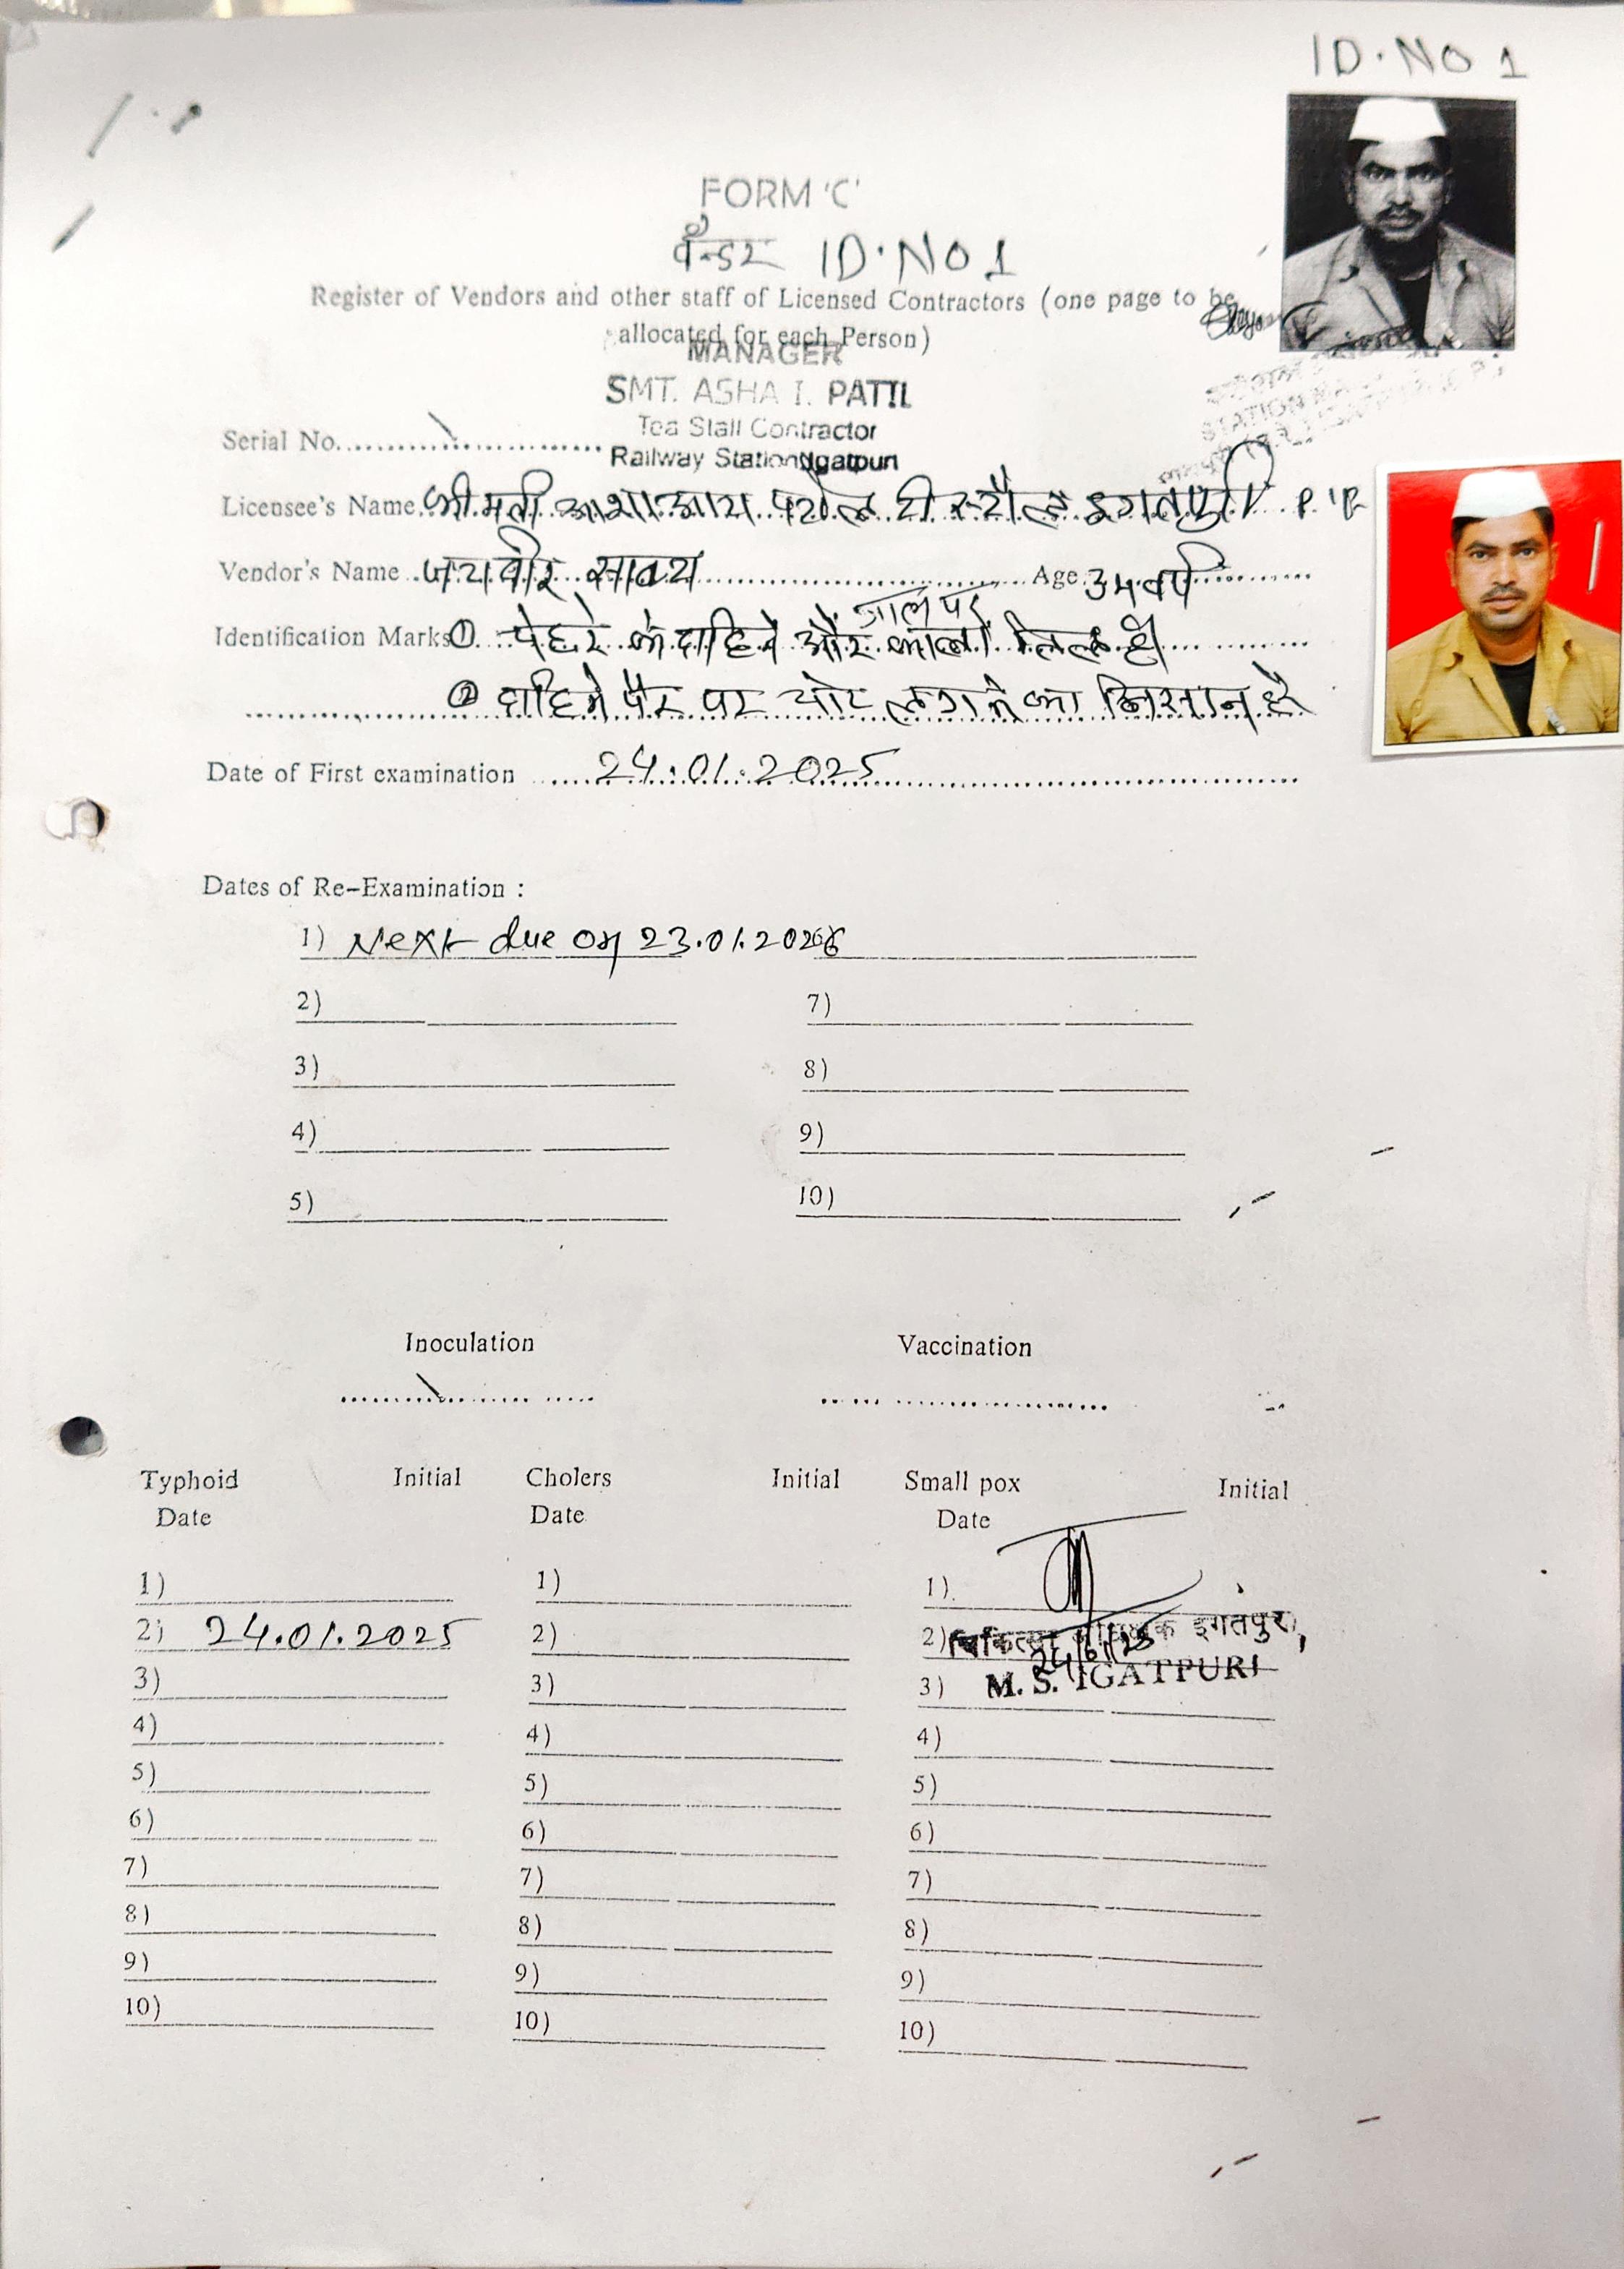 ID. NO 1
FORM 'C'
वेन्डर ID. NO 1
Register of Vendors and other staff of Licensed Contractors (one page to be
allocated for each Person)
MANAGER
SMT. ASHA I. PATIL
Tea Stall Contractor
Railway Station Igatpuri
STATION
Serial No.
Licensee's Name श्रीमती आशा आय पटील टी स्टॉल इगतपुरी
Vendor's Name जयवीर Age 34 वर्ष
Identification Marks ① चेहरे के दाहिने और गाल पर काला तिल है
② दाहिने पैर पर चोट लगने का निशान है
Date of First examination 24.01.2025
Dates of Re-Examination :
1) Next due on 23.01.2026
2) 7)
3) 8)
4) 9)
5) 10)
Inoculation Vaccination
Typhoid Initial Cholers Initial Small pox Initial
Date Date Date
1) 1) 1)
2) 24.01.2025 2) 2) चिकित्सा इगतपुरी
24/01/25
3) 3) 3) M. S. IGATPURI
4) 4) 4)
5) 5) 5)
6) 6) 6)
7) 7) 7)
8) 8) 8)
9) 9) 9)
10) 10) 10)